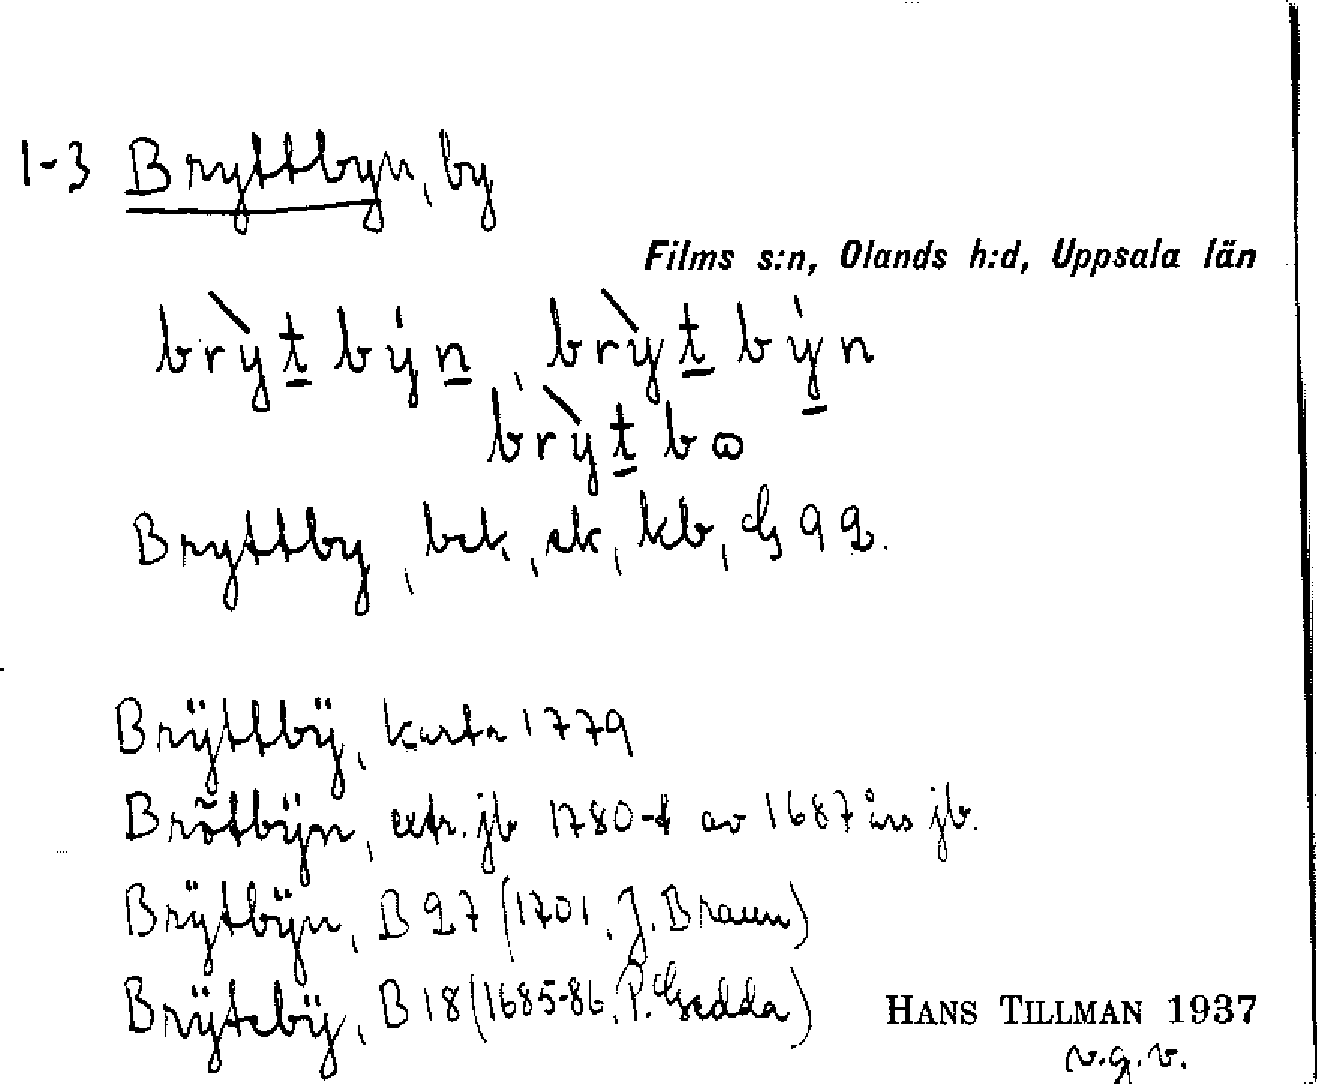 1-3 Bryttbyn, by
Films s:n, Olands h:d, Uppsala län
brỳt býn, brỳt býn
brỳt bɷ
Bryttby, bek, ek, kb, G 92.
Brÿttbÿ, karta 1779
Brõtbÿn, extr. jb 1780-t av 1687 års jb.
Brÿtbÿn, B 27 (1701, J. Braun)
Brÿtebÿ, B 18 (1685-86, P. Gedda)
HANS TILLMAN 1937
v.g.v.